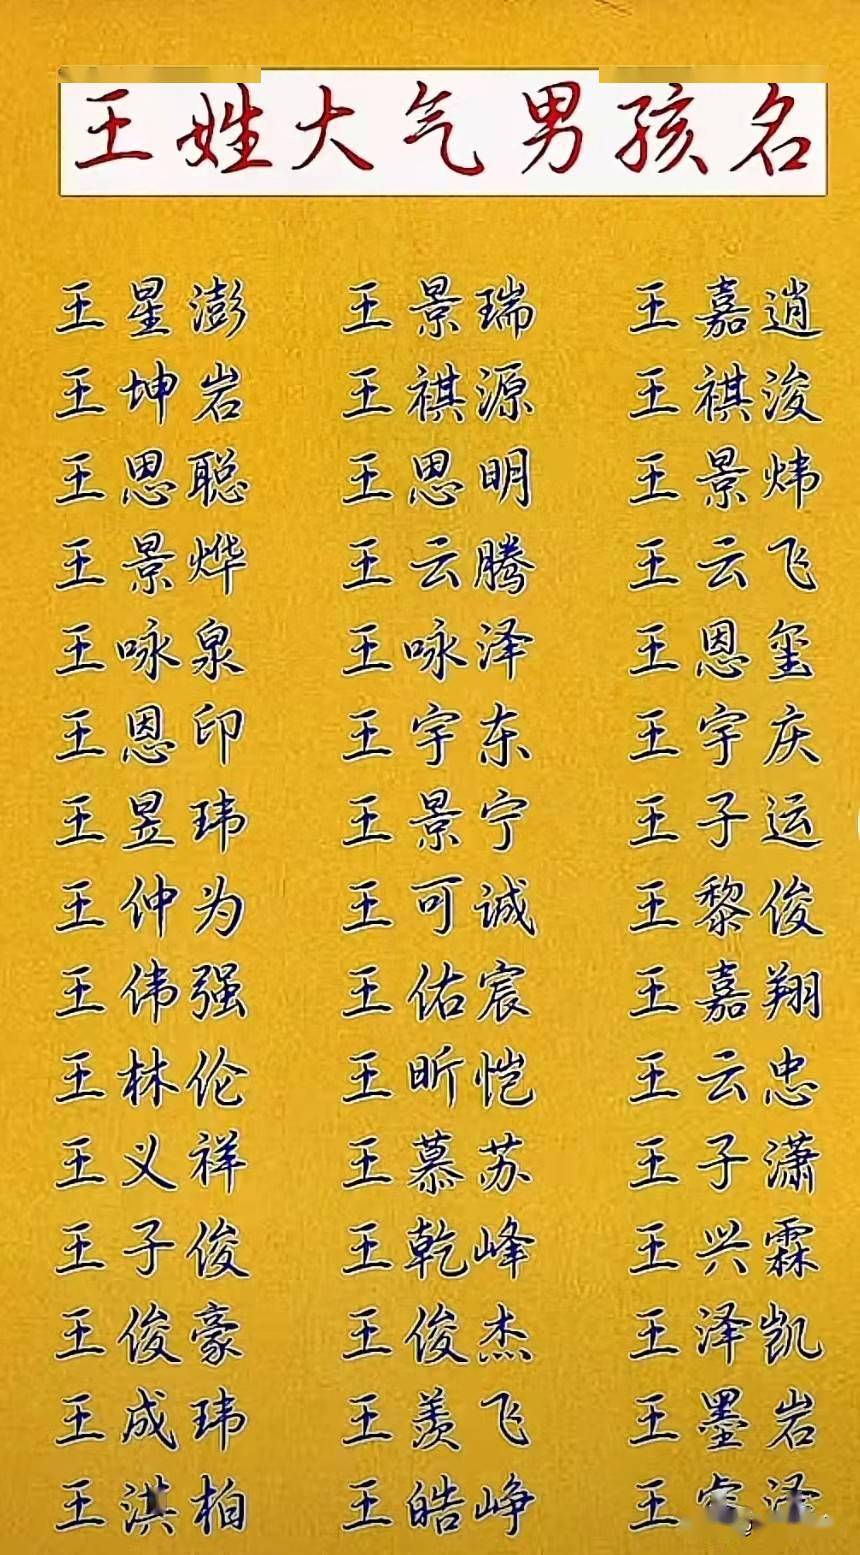 王姓大气男孩名
王星澎 王景瑞 王嘉逍
王坤岩 王祺源 王祺浚
王思聪 王思明 王景炜
王景烨 王云腾 王云飞
王咏泉 王咏泽 王恩玺
王恩印 王宇东 王宇庆
王昱玮 王景宁 王子运
王仲为 王可诚 王黎俊
王伟强 王佑宸 王嘉翔
王林伦 王昕恺 王云忠
王义祥 王慕苏 王子潇
王子俊 王乾峰 王兴霖
王俊豪 王俊杰 王泽凯
王成玮 王羡飞 王墨岩
王淇柏 王皓峥 王